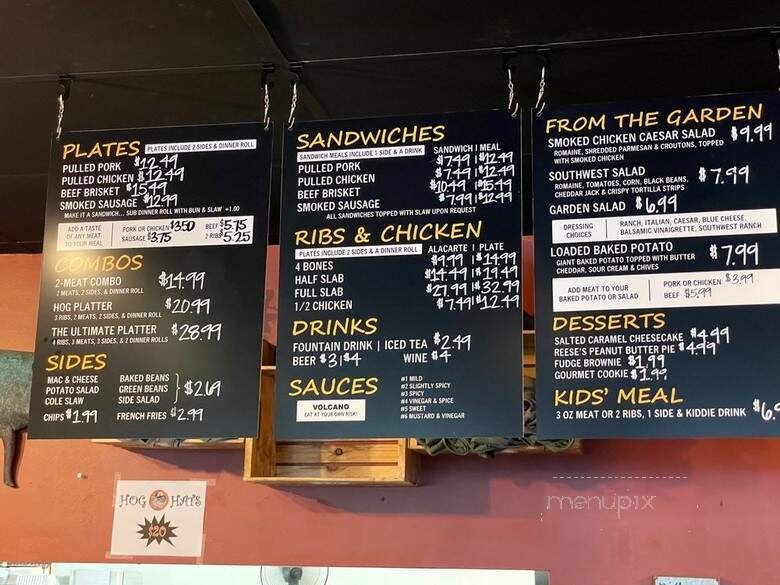 PLATES PLATES INCLUDE 2 SIDES & DINNER ROLL
PULLED PORK $12.49
PULLED CHICKEN $12.49
BEEF BRISKET $15.49
SMOKED SAUSAGE $12.99
MAKE IT A SANDWICH... SUB DINNER ROLL WITH BUN & SLAW +1.00
ADD A TASTE
OF ANY MEAT
TO YOUR MEAL
PORK OR CHICKEN $3.50 BEEF $5.75
SAUSAGE $3.75 2 RIBS $5.25
COMBOS
2-MEAT COMBO $14.99
2 MEATS, 2 SIDES, & DINNER ROLL
HOG PLATTER $20.99
3 RIBS, 2 MEATS, 2 SIDES, & DINNER ROLL
THE ULTIMATE PLATTER $28.99
4 RIBS, 3 MEATS, 3 SIDES, & 2 DINNER ROLLS
SIDES
MAC & CHEESE BAKED BEANS
POTATO SALAD GREEN BEANS $2.69
COLE SLAW SIDE SALAD
CHIPS $1.99 FRENCH FRIES $2.99
SANDWICHES
SANDWICH MEALS INCLUDE 1 SIDE & A DRINK SANDWICH | MEAL
PULLED PORK $7.49 | $12.49
PULLED CHICKEN $7.49 | $12.49
BEEF BRISKET $10.49 | $15.49
SMOKED SAUSAGE $7.99 | $12.99
ALL SANDWICHES TOPPED WITH SLAW UPON REQUEST
RIBS & CHICKEN
PLATES INCLUDE 2 SIDES & A DINNER ROLL ALACARTE | PLATE
4 BONES $9.99 | $14.99
HALF SLAB $14.49 | $19.49
FULL SLAB $27.99 | $32.99
1/2 CHICKEN $7.49 | $12.49
DRINKS
FOUNTAIN DRINK | ICED TEA $2.49
BEER $3 | $4 WINE $4
SAUCES
VOLCANO
EAT AT YOUR OWN RISK!
#1 MILD
#2 SLIGHTLY SPICY
#3 SPICY
#4 VINEGAR & SPICE
#5 SWEET
#6 MUSTARD & VINEGAR
FROM THE GARDEN
SMOKED CHICKEN CAESAR SALAD $9.99
ROMAINE, SHREDDED PARMESAN & CROUTONS, TOPPED
WITH SMOKED CHICKEN
SOUTHWEST SALAD $7.99
ROMAINE, TOMATOES, CORN, BLACK BEANS,
CHEDDAR JACK & CRISPY TORTILLA STRIPS
GARDEN SALAD $6.99
DRESSING
CHOICES
RANCH, ITALIAN, CAESAR, BLUE CHEESE,
BALSAMIC VINAIGRETTE, SOUTHWEST RANCH
LOADED BAKED POTATO $7.99
GIANT BAKED POTATO TOPPED WITH BUTTER
CHEDDAR, SOUR CREAM & CHIVES
ADD MEAT TO YOUR
BAKED POTATO OR SALAD
PORK OR CHICKEN $3.99
BEEF $5.99
DESSERTS
SALTED CARAMEL CHEESECAKE $4.99
REESE'S PEANUT BUTTER PIE $4.99
FUDGE BROWNIE $1.99
GOURMET COOKIE $1.99
KIDS' MEAL
3 OZ MEAT OR 2 RIBS, 1 SIDE & KIDDIE DRINK
HOG HATS
$20
menupix